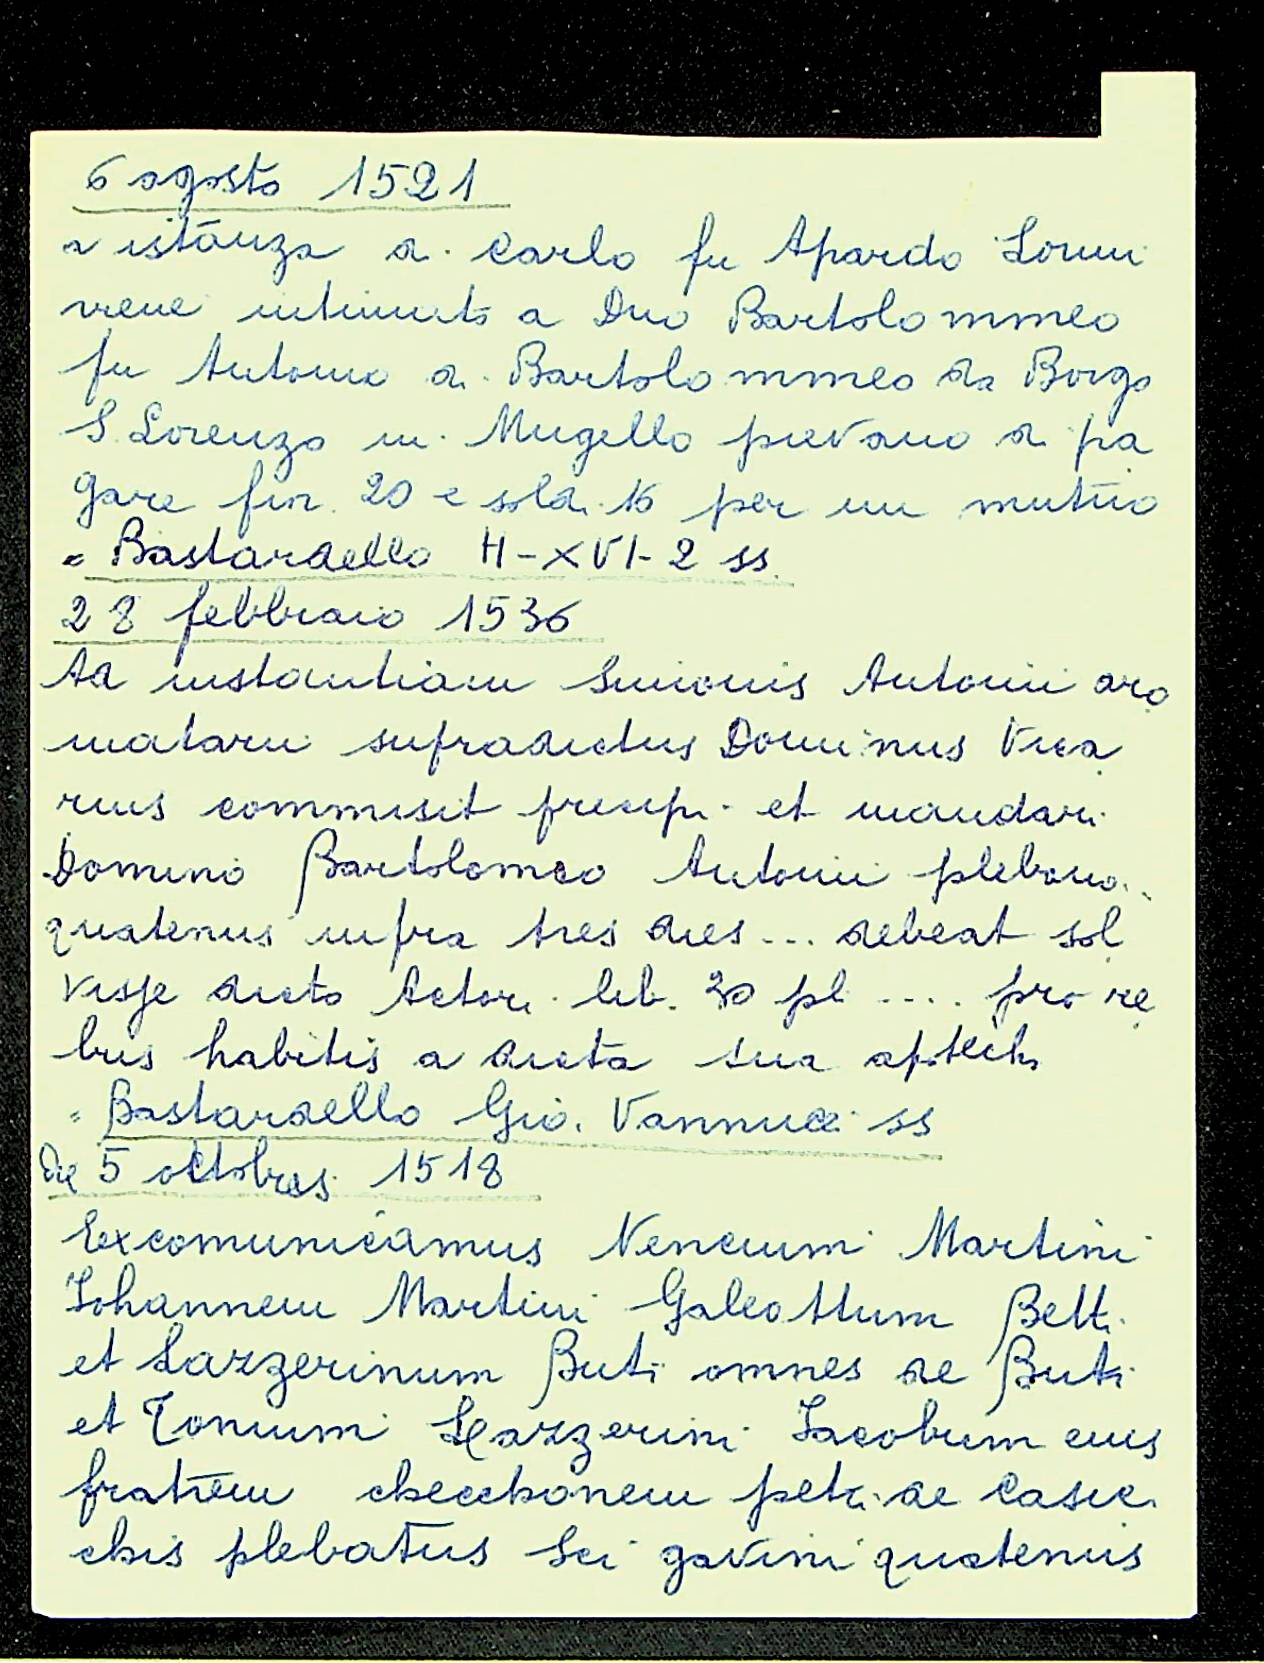 6 agosto 1521
a istanza di Carlo fu Apardo Lomi
viene intimato a Dno Bartolommeo
fu Antonio di Bartolommeo da Borgo
S. Lorenzo in Mugello pievano di pa
gare fior. 20 e soldi 16 per un mutuo
= Bastardello H-XVI-2 ss.
28 febbraio 1536
Ad instantiam Simonis Antonii aro
matarii supradictus Dominus Vica
rius commisit precipi et mandari
Domino Bartolomeo Antonii plebano..
quatenus infra tres dies ... debeat sol
visse dicto Actori lib. 30 pl .... pro re
bus habitis a dicta sua apoteca
= Bastardello Gio. Vannucci ss
Die 5 octobris 1518
Excomunicamus Nencium Martini
Johannem Martini Galeottum Betti
et Lazzerinum Buti omnes de Buti
et Tonium Lazzerini Jacobum eius
fratrem checchonem petri de Casci
chis plebatus Sci gavini quatenus